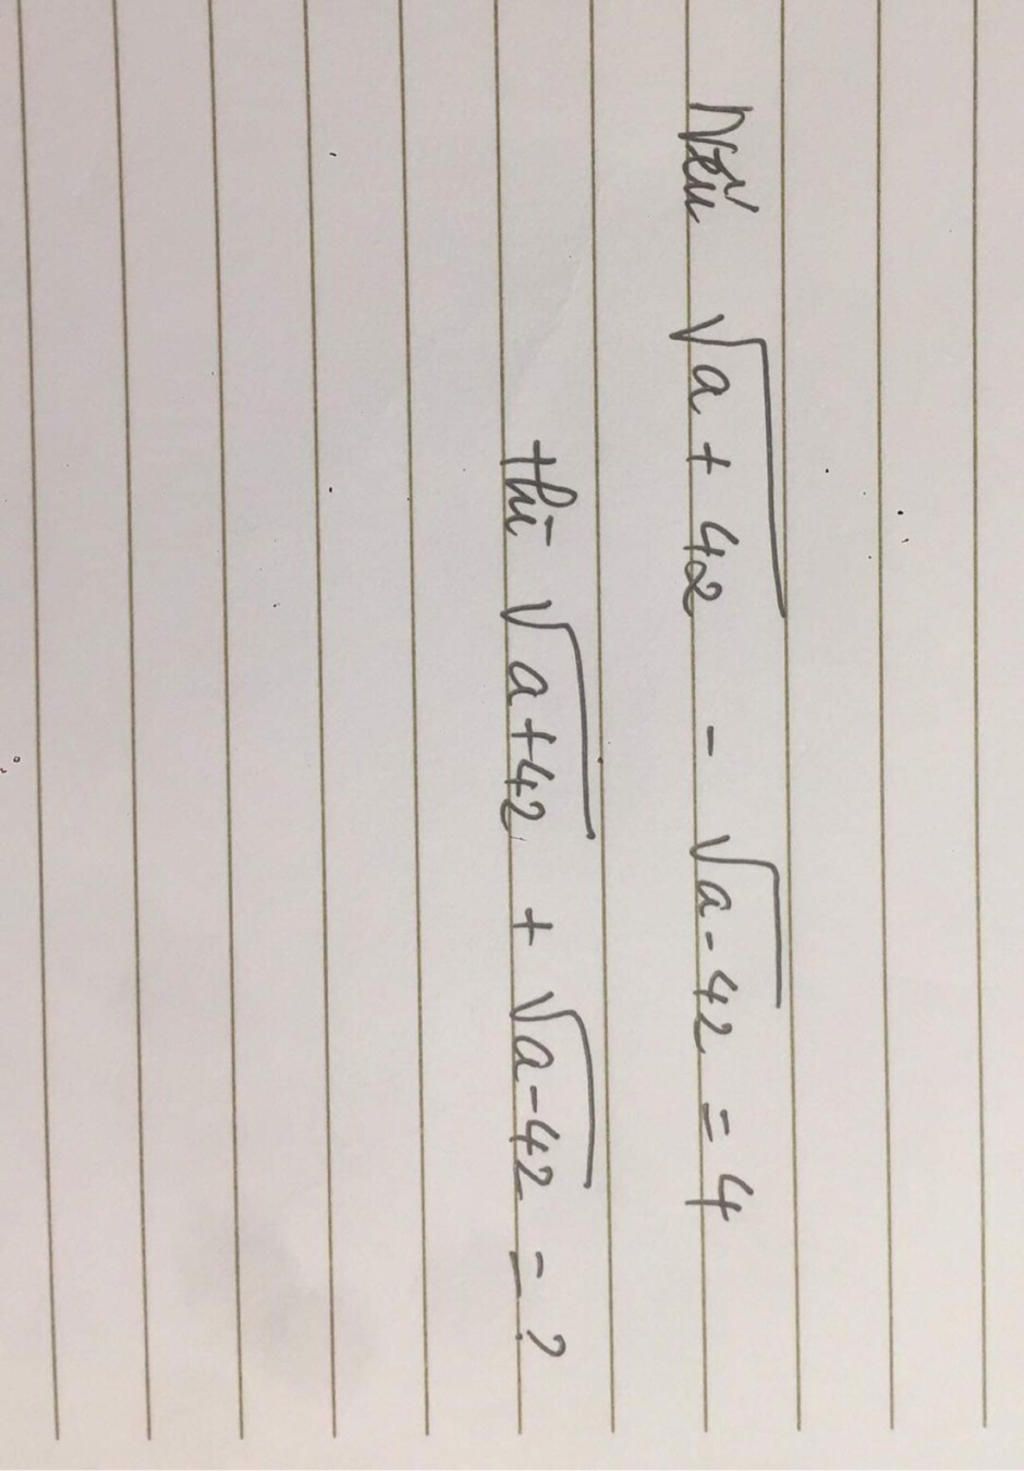 Nếu √a + 42 - √a - 42 = 4
thì √a+42 + √a-42 = ?